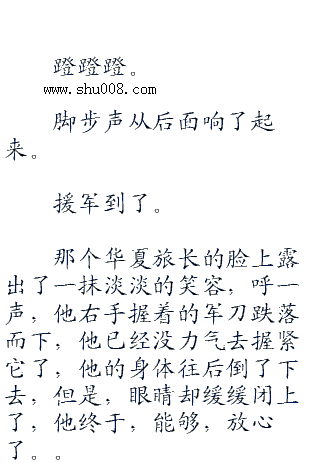 蹬蹬蹬。
www.shu008.com
脚步声从后面响了起
来。
援军到了。
那个华夏旅长的脸上露
出了一抹淡淡的笑容，呼一
声，他右手握着的军刀跌落
而下，他已经没力气去握紧
它了，他的身体往后倒了下
去，但是，眼睛却缓缓闭上
了，他终于，能够，放心
了。。